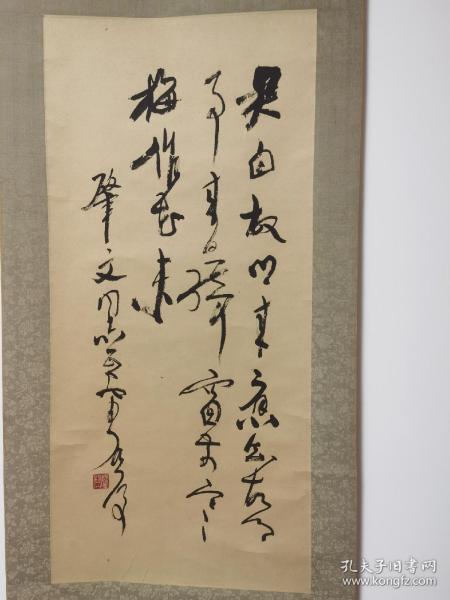 君自故乡来应知故乡
事来日绮窗前寒
梅作花未
肇文同志
孔夫子旧书网
www.kongfz.com